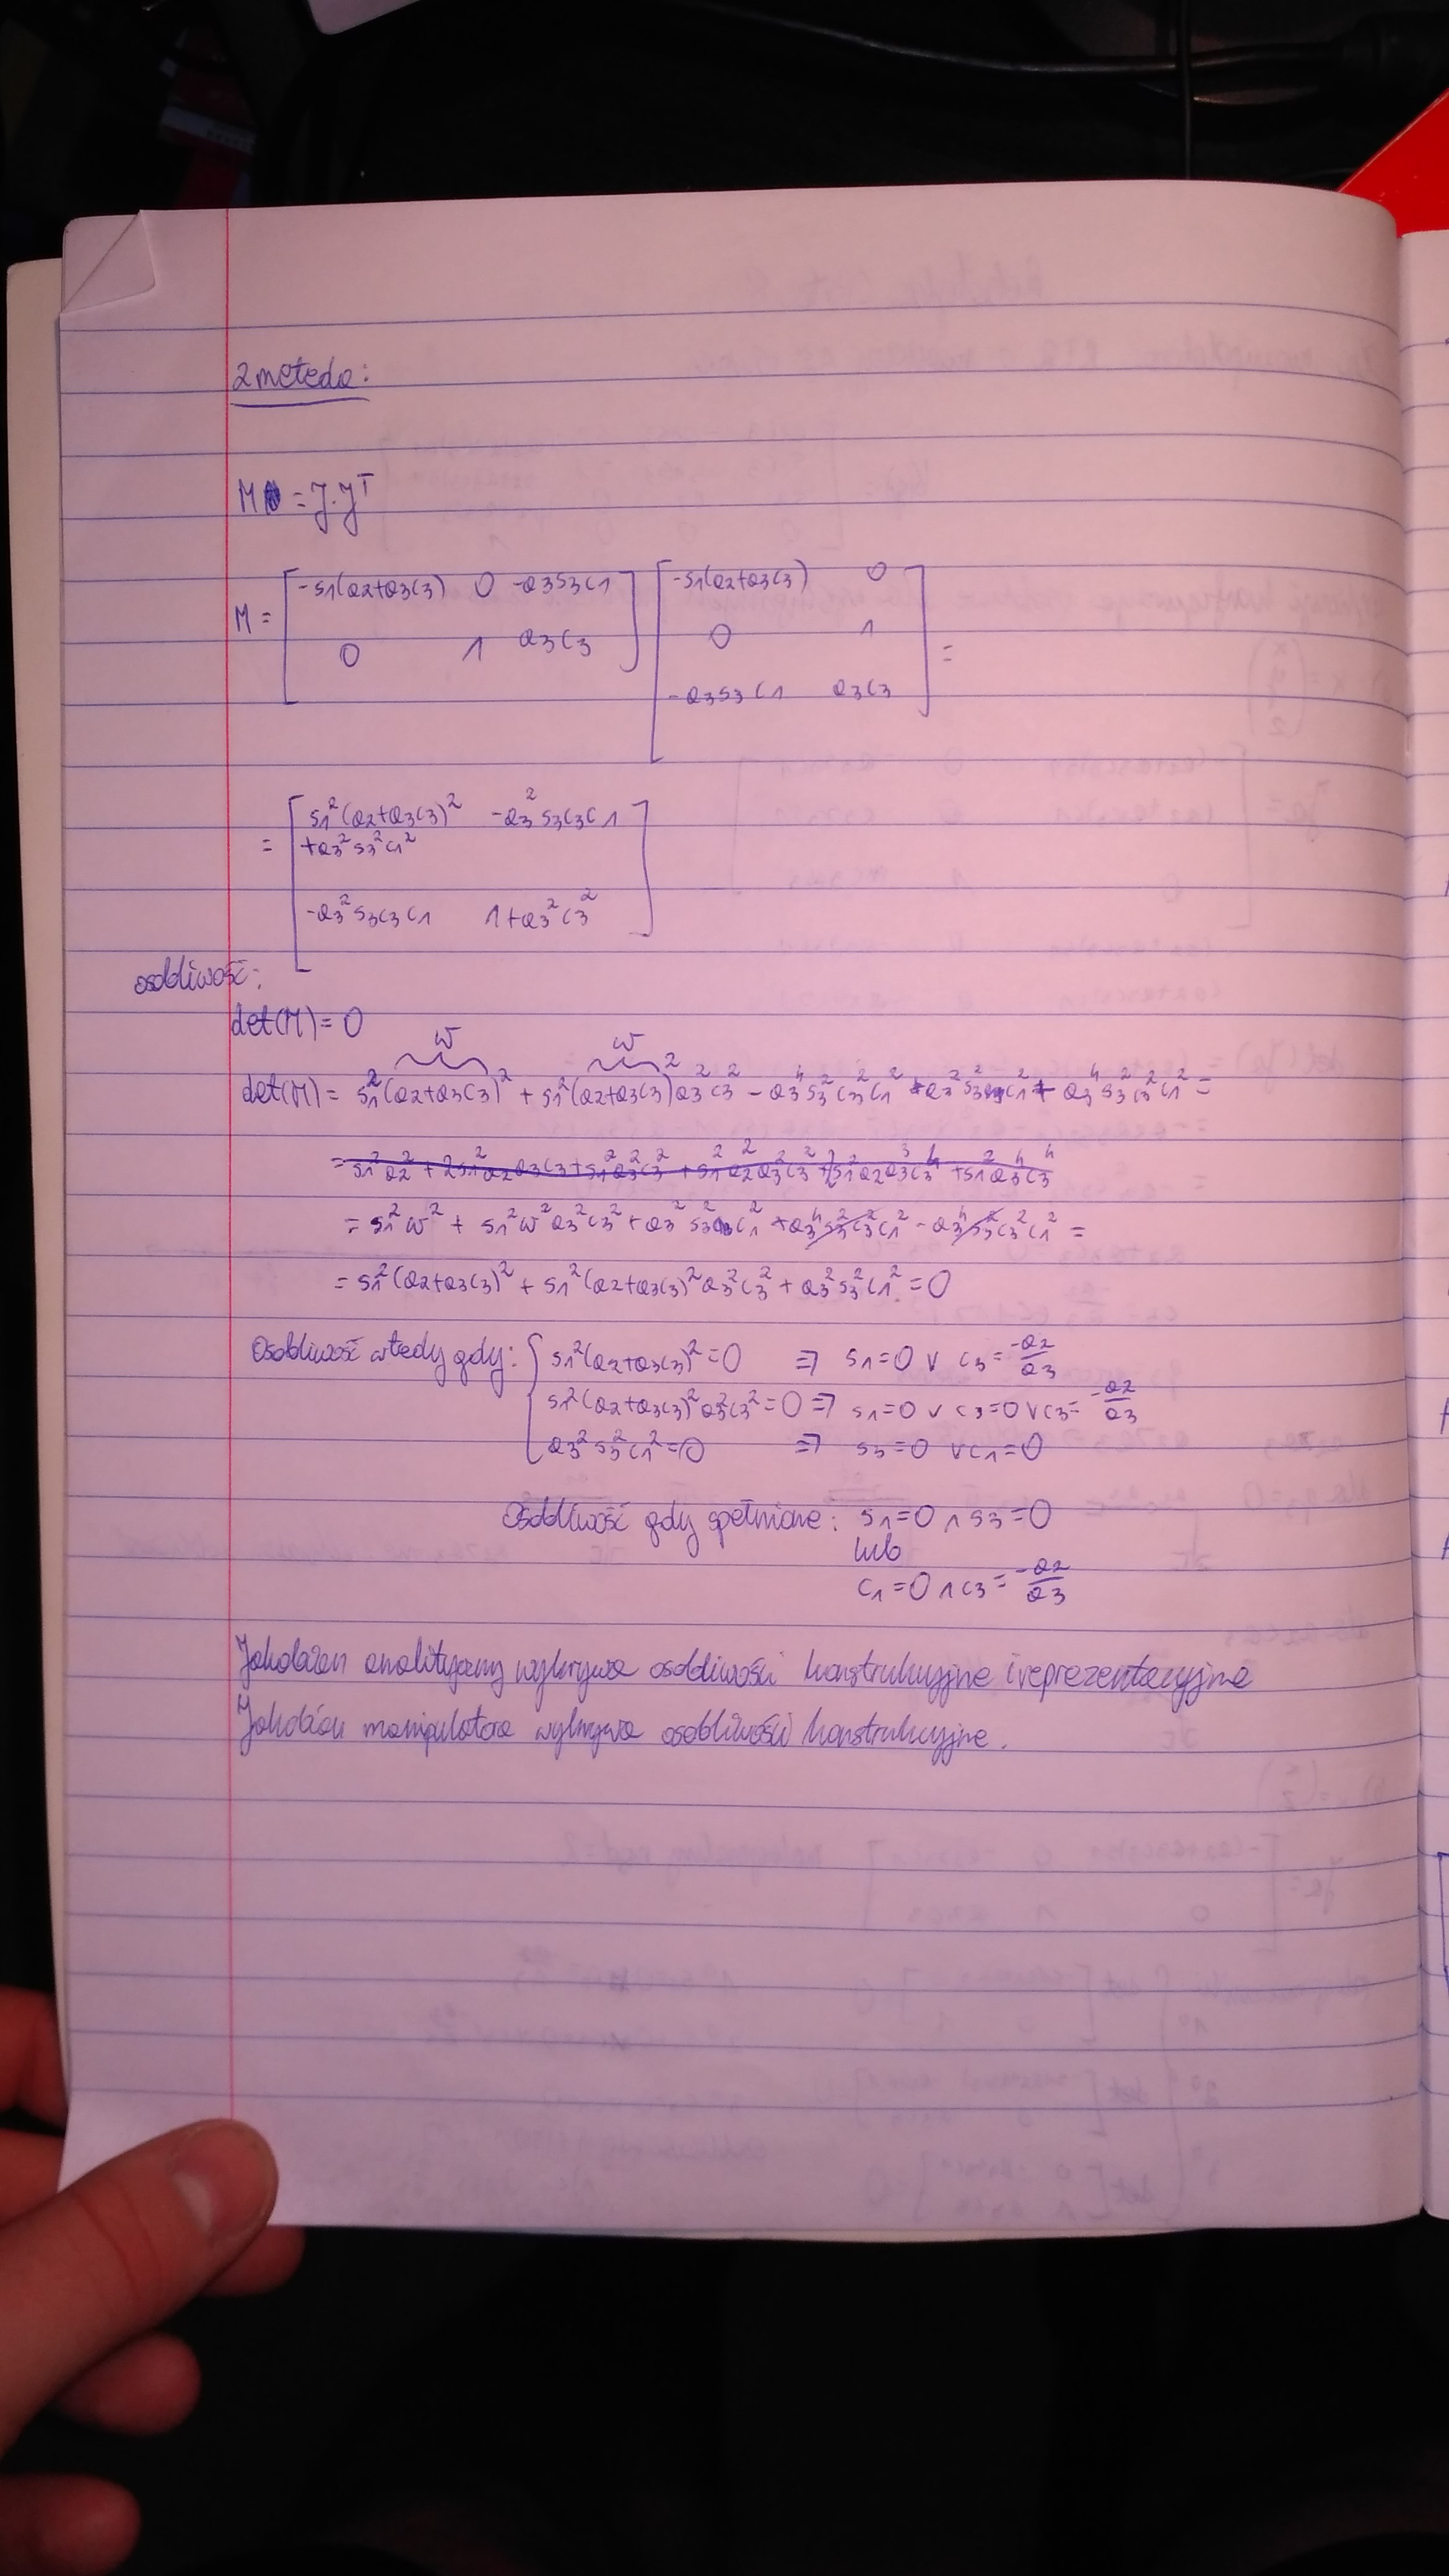 2 metoda:
M = J·Jᵀ
M = [ -s1(a2+a3c3) 0 -a3s3c1 ; 0 1 a3c3 ] [ -s1(a2+a3c3) 0 ; 0 1 ; -a3s3c1 a3c3 ] =
= [ s1²(a2+a3c3)² +a3²s3²c1² -a3²s3c3c1 ; -a3²s3c3c1 1+a3²c3² ]
osobliwość:
det(M) = 0
w w
det(M) = s1²(a2+a3c3)² + s1²(a2+a3c3)²a3²c3² - a3⁴s3²c3²c1² + a3²s3²c1² + a3⁴s3²c3²c1² =
= s1²w² + s1²w²a3²c3² + a3²s3²c1² + a3⁴s3²c3²c1² - a3⁴s3²c3²c1² =
= s1²(a2+a3c3)² + s1²(a2+a3c3)²a3²c3² + a3²s3²c1² = 0
Osobliwość wtedy gdy: { s1²(a2+a3c3)² = 0 ⇒ s1=0 ∨ c3= -a2/a3
s1²(a2+a3c3)²a3²c3² = 0 ⇒ s1=0 ∨ c3=0 ∨ c3= -a2/a3
a3²s3²c1² = 0 ⇒ s3=0 ∨ c1=0
Osobliwość gdy spełnione: s1=0 ∧ s3=0
lub
c1=0 ∧ c3= -a2/a3
Jakobian analityczny wykrywa osobliwości konstrukcyjne i reprezentacyjne
Jakobian manipulatora wykrywa osobliwości konstrukcyjne.